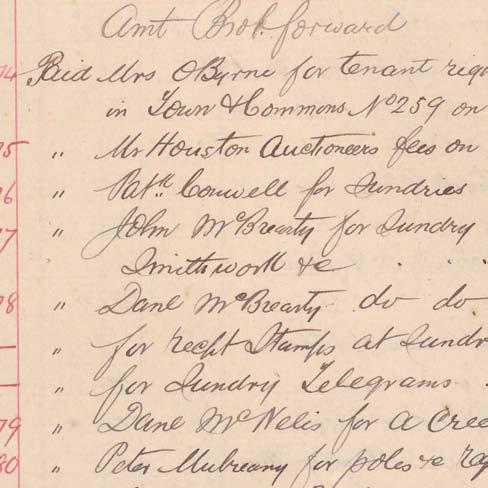 Amt Brot. forward
74 Paid Mrs O'Byrne for tenant righ
in Town & Commons No 259 on
75 " Mr Houston Auctioneers fees on
76 " Patk. Conwell for Sundries
77 " John McBrearty for Sundry
Smithswork &c . . .
78 " Danl McBrearty do do
— " for recpt Stamps at Sundr
— " for Sundry Telegrams .
79 " Danl McNelis for a Cree
80 " Peter Mulreany for poles &c